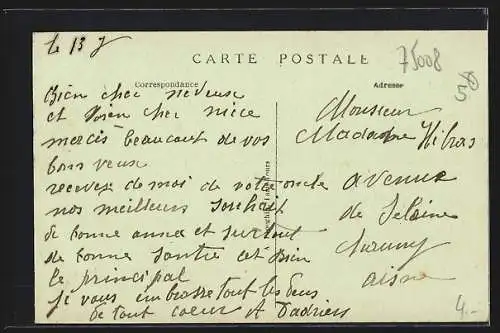 le 13 J
75008
CARTE POSTALE
Correspondance
Adresse
Bien cher neveux
et bien cher niece
mercis beaucout de vos
bons veux
recevese de moi de votre oncle
nos meilleurs souhait
de bonne anneé et surtout
de bonne santée cet bien
le principal
je vous imbrasse tout les deus
de tout coeur A
Monsieur
Madame
avenue
de
aisne
4.-